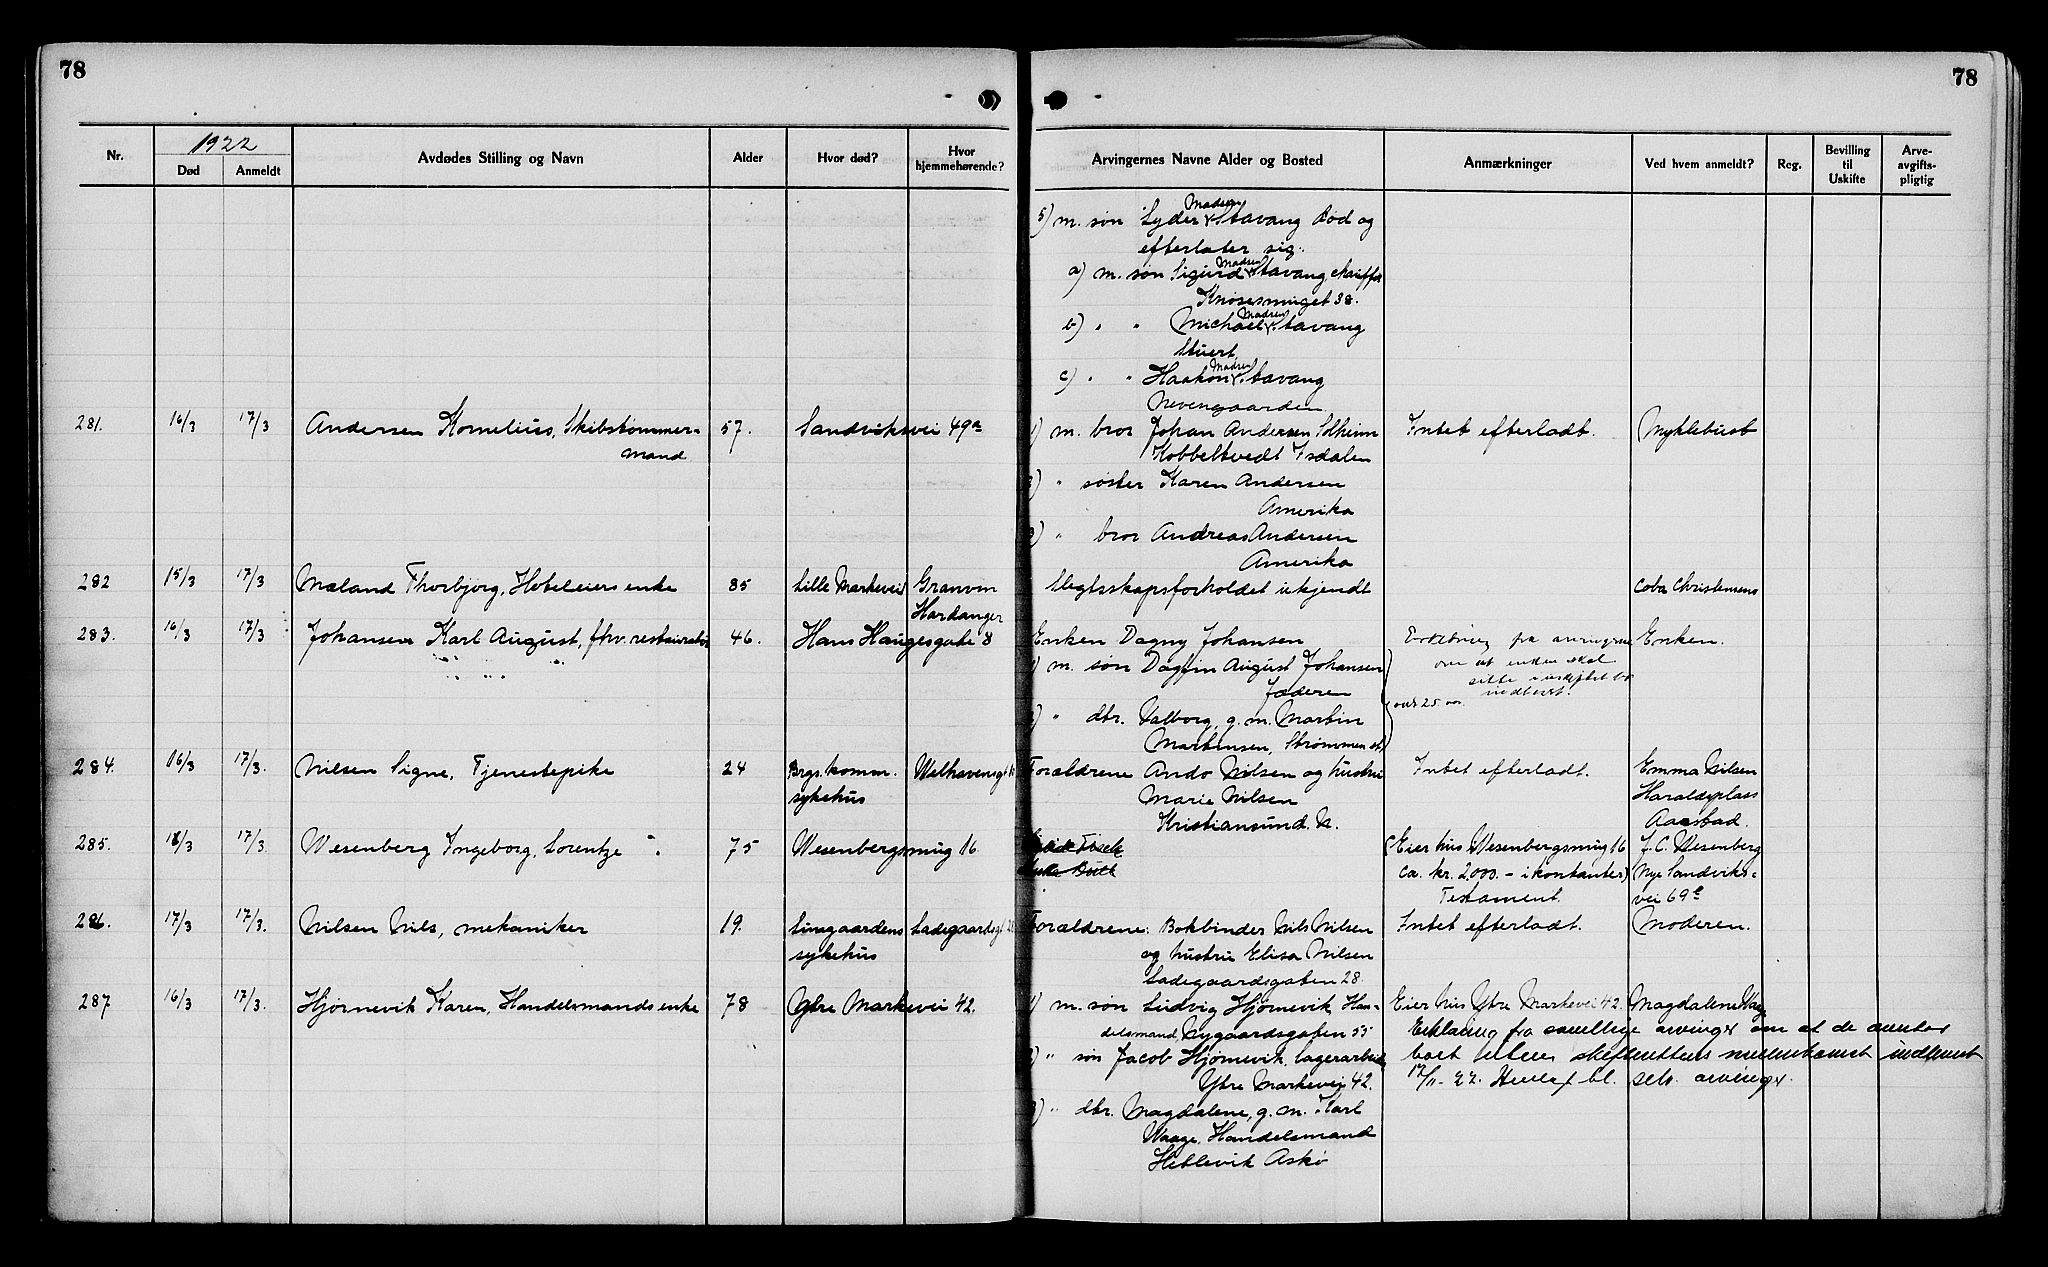 78
78
Nr.
1922
Død
Anmeldt
Avdødes Stilling og Navn
Alder
Hvor død?
Hvor
hjemmehørende?
Arvingernes Navne Alder og Bosted
Anmærkninger
Ved hvem anmeldt?
Reg.
Bevilling
til
Uskifte
Arve-
avgifts-
pligtig
Madsen
5) m. søn Lyder Stavang død og
efterlater sig:
Madsen
a) m. søn Sigurd Stavang chauffør
Knøsesmuget 38.
Madsen
b) " " Michael Stavang
Stuert
Madsen
c) " " Haakon Stavang
Nevengaarden
281. 16/3 17/3 Andersen Kornelius, Skibstømmer- 57. Sandviksvei 49a 1) m. bror Johan Andersen Solheim Intet efterladt. Myklebust
mand Kobbeltvedt Isdalen
2) " søster Karen Andersen
Amerika
3) " bror Andreas Andersen
Amerika
282 15/3 17/3 Mæland Thorbjørg, Hoteleiers enke 85 Lille Markevei Granvin Slegtsskapsforholdet ukjendt Coba Christensens
Hardanger
283. 16/3 17/3 Johansen Karl August, fhv. restauratør 46. Hans Haugesgate 8 Enken Dagny Johansen Erklæring fra arvingene Enken.
1) m. søn Dagfin August Johansen over at enken skal
sitte i uskiftet bo
Jæderen indlevert.
2) " dtr. Valborg, g. m. Martin over 25 aar.
Martinsen, Strømmen st.
284. 16/3 17/3. Nilsen Signe, Tjenestepike 24 Brgs. komm. Welhavensgt Forældrene Ando Nilsen og hustru Intet efterladt. Emma Nilsen
sykehus Marie Nilsen Haraldsplass
Kristiansund. N. Aasstad.
285. 16/3 17/3. Wesenberg Ingeborg, Lorentze 75 Wesenbergsmug 16 (Eier hus Wesenbergsmug 16 J. C. Wesenberg
ca. kr. 2000.- i kontanter) Nye Sandviks-
Testament. vei 69e
286. 17/3 17/3. Nilsen Nils, mekaniker 19. Lungaardens Ladegaardsgt 28 Forældrene: Bokbinder Nils Nilsen Intet efterladt. Moderen.
sykehus og hustru Elisa Nilsen
Ladegaardsgaten 28.
287 16/3 17/3. Hjørnevik Karen, Handelsmands enke 78 Ytre Markevei 42. 1) m. søn Ludvig Hjørnevik Han- Eier hus Ytre Markevei 42. Magdalene Waage
delsmand, Nygaardsgaten 55 Erklæring fra samtlige arvinger om at de overtar
2) " søn Jacob Hjørnevik, lagerarbeider boet uten skifterettens mellemkomst indlevert
Ytre Markevei 42. 17/11-22. bl. selv. arvinger.
3) " dtr. Magdalene, g. m. Karl
Waage, Handelsmand
Hetlevik Askø